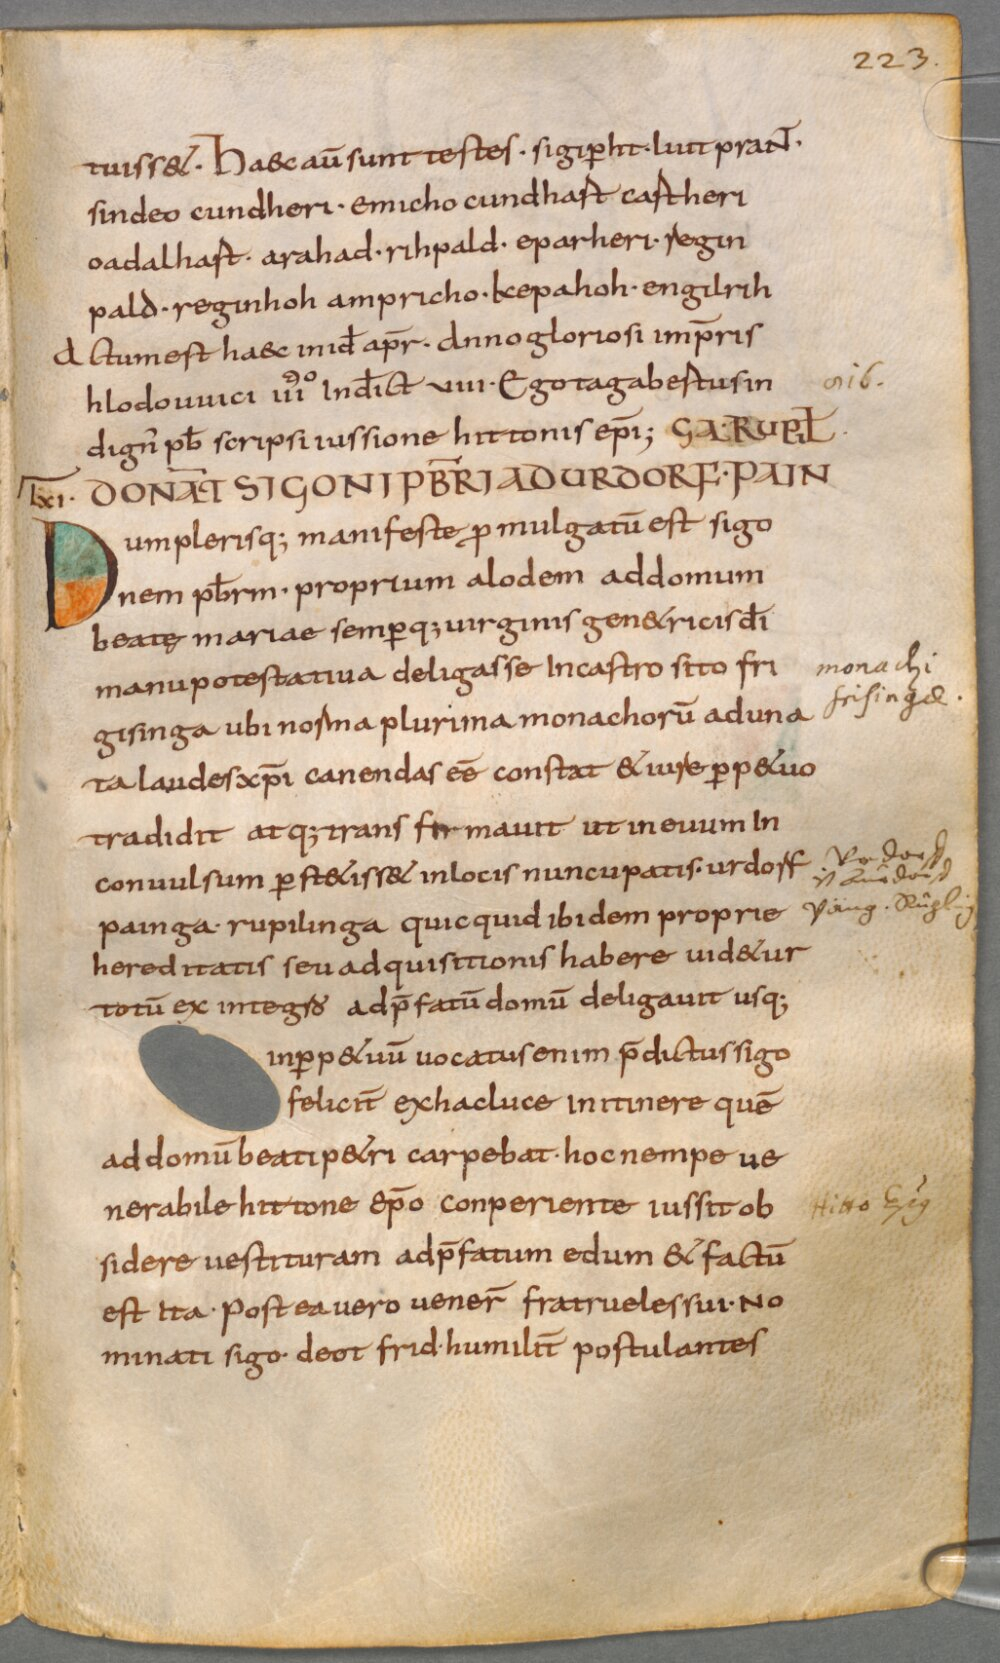 223.
tuiss&. Haec aū sunt testes. sigip̄ht. lutpran̄.
sindeo cundheri. emicho cundhast castheri
oadalhast. arahad. rihpald. eparheri. regin
pald. reginhoh ampricho. kepahoh. engilrih
dctum est haec in id̄ ap̄r. dnno gloriosi imp̄ris
hlodouuici Indict viiii. Ego tagabertus in
dign̄ pb̄ scripsi iussione hittonis ep̄i;
816.
lxi. DONAT̄ SIGONI PB̄RI AD URDORF. PAIN
Dum plerisq; manifeste p̄mulgatū est sigo
nem pb̄rm. proprium alodem ad domum
beatę mariae semp̄q; uirginis gen&ricis d̄i
manu potestatiua deligasse In castro sito fri
monachi
gisinga ubi norma plurima monachorū aduna
frising&.
ta laudes xp̄i canendas eē constat & iure p̄p&uo
tradidit atq; transfirmauit ut in euum In
conuulsum p̄st&iss& in locis nuncupatis. urdorf
painga. rupilinga quicquid ibidem proprie
hereditatis seu adquisitionis habere uid&ur
totū ex integro ad p̄fatū domū deligauit usq;
in p̄p&uū uocatus enim p̄dictus sigo
felicit̄ ex hac luce in itinere quē
ad domū beati p&ri carpebat. hoc nempe ue
nerabile hittone ep̄o conperiente iussit ob
Hitto
sidere uestituram ad p̄fatum edum & factū
est ita. Postea uero uener̄ fratrueles sui. No
minati sigo. deot frid. humilit̄ postulantes